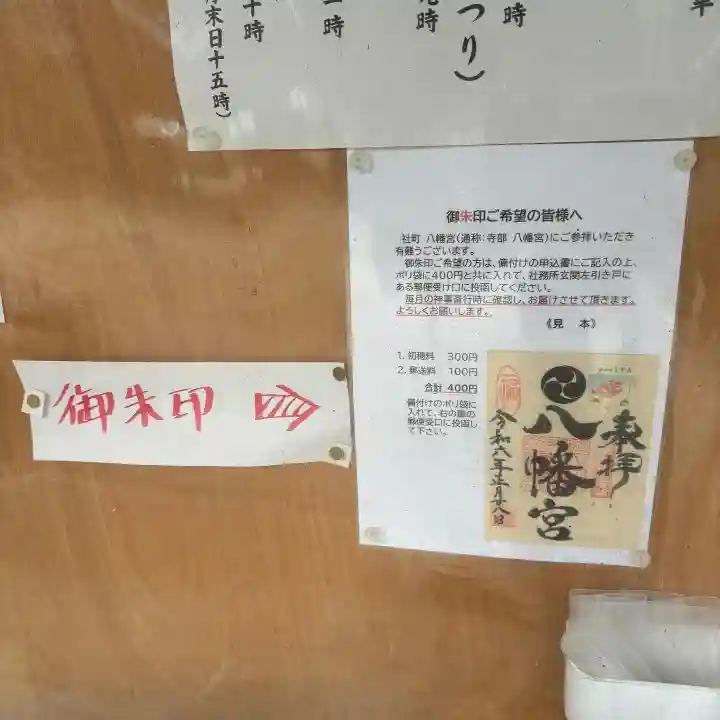 半
時
つり)
九時
一時
十時
月末日十五時)
御朱印ご希望の皆様へ
社町 八幡宮(通称:寺部 八幡宮)にご参拝いただき
有難うございます。
御朱印ご希望の方は、備付けの申込書にご記入の上、
ポリ袋に400円と共に入れて、社務所玄関左引き戸に
ある郵便受け口に投函してください。
毎日の神事斎行時に確認し、お届けさせて頂きます。
よろしくお願いします。
《見 本》
1. 初穂料 300円
2. 郵送料 100円
合計 400円
備付けのポリ袋に
入れて、右の扉の
郵便受口に投函し
て下さい。
奉拝
八幡宮
令和六年正月廿八日
御朱印